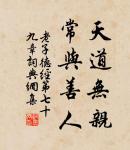 天道無親
常與善人
老子德經第七十
九章詞典網集